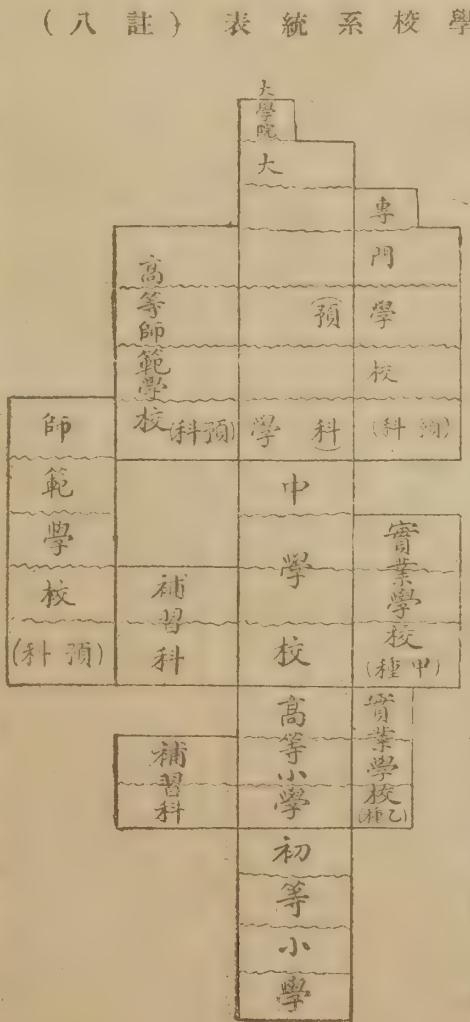 學校系統表（註八）
大學院
大學（預科）
專門學校（預科）
高等師範學校（預科）
師範學校（預科）
中學校
實業學校（甲種）
補習科
高等小學
實業學校（乙種）
補習科
初等小學